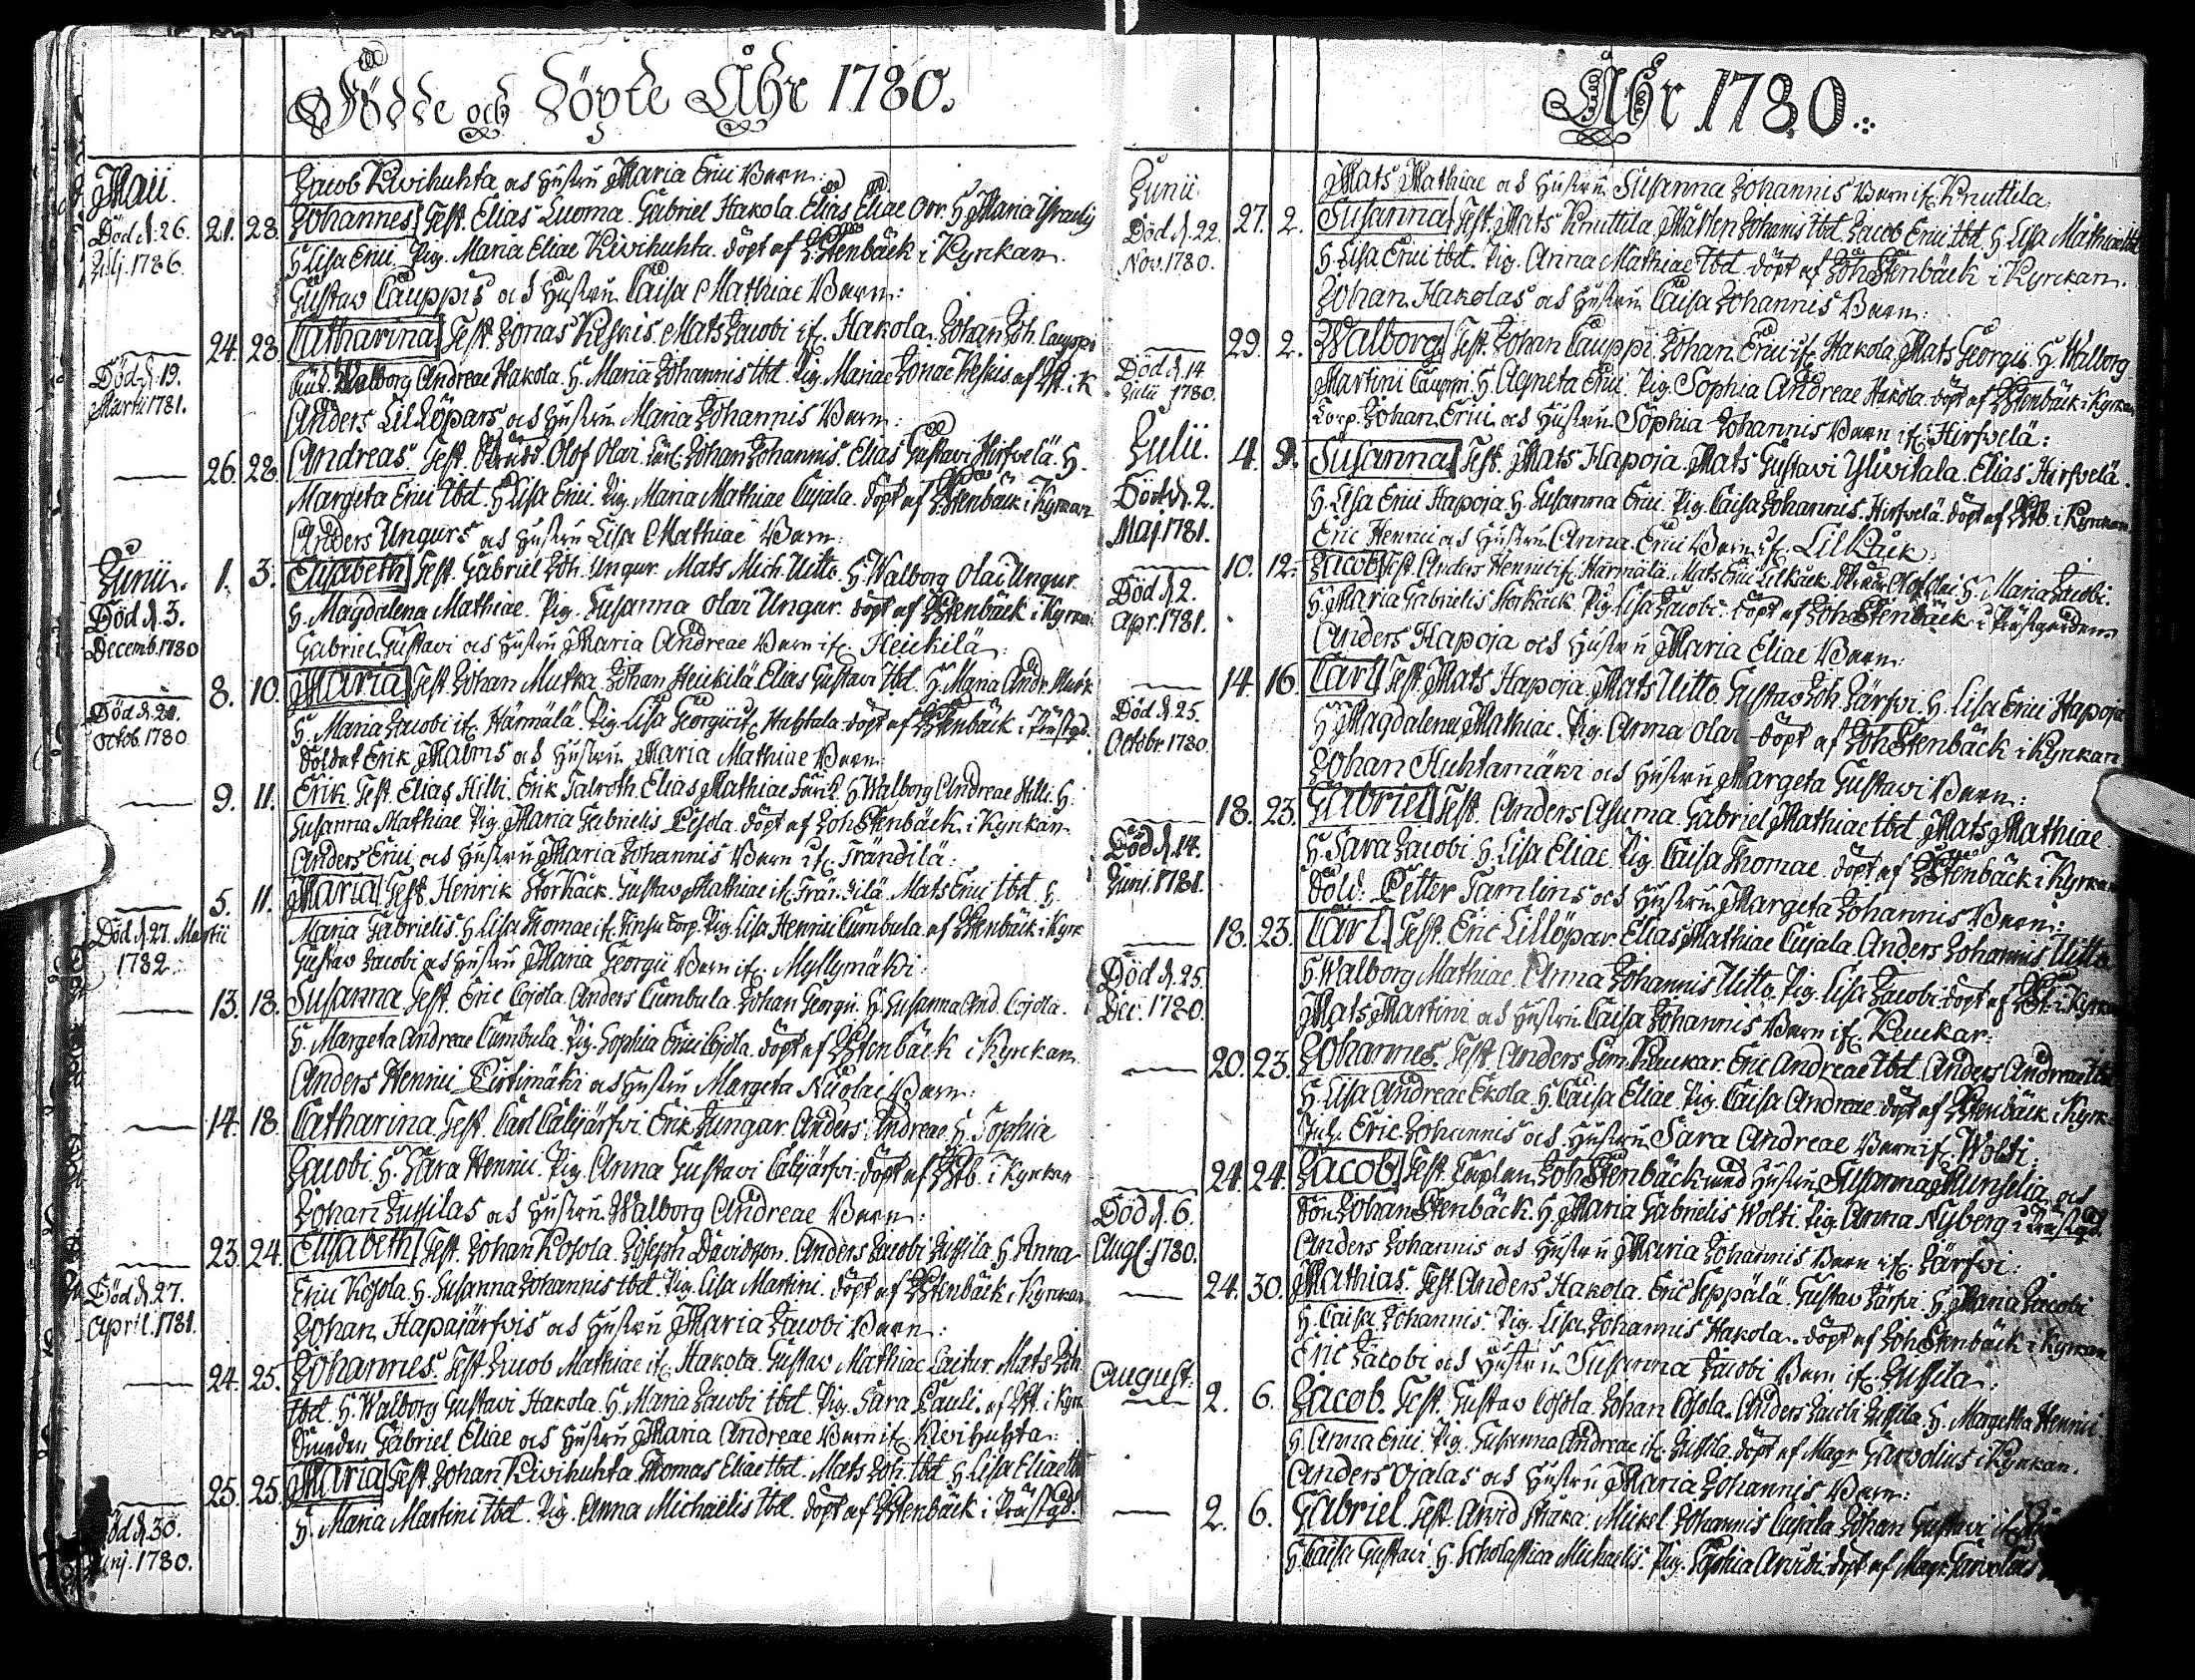 Födde och Döpte Åhr 1780.
Maii.
Jacob Kivihuhta och Hustru Maria Erici Barn:
Död d. 26. Julj. 1786.
21. 28. Johannes Test. Elias Luoma. Gabriel Hakola. Elias Eliae Orr. H. Maria
H. Lisa Erici. Pig. Maria Eliae Kivihuhta. döpt af J. Stenbäck i Kyrkan.
Gustav Cauppis och Hustru Caisa Mathiae Barn:
24. 28. Catharina Test. Jonas Keskis. Mats Jacobi if. Hakola. Johan Joh. Cauppi
Död d. 19. Martii 1781.
Walborg Andreae Hakola. H. Maria Johannis Ibd. Pig. Maria Jonae Keskis. af J. St. i K
Anders Lillöpars och Hustru Maria Johannis Barn:
26. 28. Andreas. Test. Olof Olai. Johan Johannis. Elias Gustavi Hirfvelä. H.
Margeta Erici Ibd. H. Lisa Erici. Pig. Maria Mathiae Cujala. döpt af J. Stenbäck i Kyrkan
Anders Ungurs och Hustru Lisa Mathiae Barn:
Junii. 1. 3. Elisabeth Test. Gabriel Joh. Ungur. Mats Mich. Uitto. H. Walborg Olai Ungur.
Död d. 3. Decemb. 1780
H. Magdalena Mathiae. Pig. Susanna Olai Ungur. döpt af J. Stenbäck i Kyrkan.
Gabriel Gustavi och Hustru Maria Andreae Barn if. Heickilä:
8. 10. Maria Test. Johan Mutka. Johan Heickilä. Elias Gustavi Ibd. H. Maria Andr.
Död d. 20. Octob. 1780
H. Maria Jacobi if. Härmälä. Pig. Lisa Georgii if. Huhtala. döpt af J. Stenbäck i Prästgd.
Soldat Erik Malms och Hustru Maria Mathiae Barn:
9. 11. Erik. Test. Elias Hilli. Erik Talroth. Elias Mathiae H. Walborg Andreae Hilli. H.
Susanna Mathiae. Pig. Maria Gabrielis Pesola. döpt af Joh Stenbäck i Kyrkan.
Anders Erici och Hustru Maria Johannis Barn if. Trändilä:
5. 11. Maria Test. Henrik Storkäck. Gustav Mathiae if. Trändilä. Mats Erici Ibd. H.
Död d. 27. Martii 1782.
Maria Gabrielis. H. Lisa Thomae if. Pig. Lisa Henrici Cumbula. af J. Stenbäck i Kyrk
Gustav Jacobi och Hustru Maria Georgii Barn if. Myllymäki:
13. 18. Susanna. Test. Eric Cojola. Anders Cumbula. Johan Georgii. H. Susanna And. Cojola.
H. Margeta Andreae Cumbula. Pig. Sophia Erici Cojola. döpt af J. Stenbäck i Kyrckan.
Anders Henrici Pirtimäki och Hustru Margeta Nicolai Barn:
14. 18. Catharina. Test. Carl Calijärfvi. Erik Ljungar. Anders Andreae. H. Sophia
Jacobi. H. Sara Henrici. Pig. Anna Gustavi Calijärfvi. döpt af J. Stb. i Kyrkan
Johan Jussilas och Hustru Walborg Andreae Barn:
23. 24. Elisabeth Test. Johan Kosola. Joseph Davidson. Anders Jacobi Jussila. H. Anna
Död d. 27. April. 1781.
Erici Kosola. H. Susanna Johannis Ibd. Pig. Lisa Martini. döpt af J. Stenbäck i Kyrkan
Johan Hapajärfvis och Hustru Maria Jacobi Barn:
24. 25. Johannes. Test. Jacob Mathiae if. Hakola. Gustav Mathiae Caitur. Mats Joh.
Ibd. H. Walborg Gustavi Hakola. H. Maria Jacobi Ibd. Pig. Sara Pauli. af J. St. i Kyrk
Smeden Gabriel Eliae och Hustru Maria Andreae Barn if. Kivihuhta:
25. 25. Maria Test. Johan Kivihuhta. Thomas Eliae Ibd. Mats Joh. Ibd. H. Lisa Eliae Ibd
Död d. 30. Junj. 1780.
H. Maria Martini Ibd. Pig. Anna Michaelis Ibd. döpt af J. Stenbäck i Prästgd.
Åhr 1780.
Junii.
Mats Mathiae och Hustru Susanna Johannis Barn if. Knuttila:
27. 2. Susanna Test. Mats Knuttila. Mårten Johannis Ibd. Jacob Erici Ibd. H. Lisa Mathiae Ibd
Död d. 22. Nov. 1780.
H. Lisa Erici Ibd. Pig. Anna Mathiae Ibd. döpt af Joh Stenbäck i Kyrckan.
Johan Hakolas och Hustru Caisa Johannis Barn:
29. 2. Walborg Test. Johan Cauppi. Johan Erici if. Hakola. Mats Georgii. H. Walborg
Död d. 14 Julii 1780.
Martini Cauppi. H. Agneta Erici. Pig. Sophia Andreae Hakola. döpt af J. Stenbäck i Kyrkan
Corp. Johan Erici och Hustru Sophia Johannis Barn if. Hirfvelä:
Julii. 4. 9. Susanna Test. Mats Hapoja. Mats Gustavi Yliwitala. Elias Hirfvelä.
Död d. 2. Maj. 1781.
H. Lisa Erici Hapoja. H. Susanna Erici. Pig. Caisa Johannis Hirfvelä. döpt af J. Stb. i Kyrkan
Eric Henrici och Hustru Anna Erici Barn if. Lilkäck:
10. 12. Jacob Test. Anders Henrici if. Härmälä. Mats Erici Lilkäck. Olof Olai. H. Maria Jacobi.
Död d. 2. Apr. 1781.
H. Maria Gabrielis Storkäck. Pig. Lisa Jacobi. döpt af Joh Stenbäck i Prästgården
Anders Hapoja och Hustru Maria Eliae Barn:
14. 16. Carl Test. Mats Hapoja. Mats Uitto. Gustav Joh. Järfvi. H. Lisa Erici Hapoja
Död d. 25. Octobr. 1780.
H. Magdalena Mathiae. Pig. Anna Olai. döpt af Joh Stenbäck i Kyrckan
Johan Huhtamäki och Hustru Margeta Gustavi Barn:
18. 23. Gabriel Test. Anders Asuma. Gabriel Mathiae Ibd. Mats Mathiae.
Död d. 14. Junj. 1781.
H. Sara Jacobi. H. Lisa Eliae. Pig. Caisa Thomae. döpt af J. Stenbäck i Kyrkan
Sold. Petter Tamlins och Hustru Margeta Johannis Barn:
18. 23. Carl. Test. Eric Lillöpar. Elias Mathiae Cujala. Anders Johannis Uitto
Död d. 25. Dec. 1780.
H. Walborg Mathiae. Anna Johannis Uitto. Pig. Lisa Jacobi. döpt af J. St. i Kyrkan
Mats Martini och Hustru Caisa Johannis Barn if. Kauckar:
20. 23. Johannes. Test. Anders Sim. Kauckar. Eric Andreae Ibd. Anders Andreae Ibd
H. Lisa Andreae Ekola. H. Caisa Eliae. Pig. Caisa Andreae. döpt af J. Stenbäck i Kyrk.
Eric Johannis och Hustru Sara Andreae Barn if. Wolti:
24. 24. Jacob Test. Caplan Joh Stenbäck med Hustru Susanna Munselia och
Död d. 6. Aug. 1780.
Son Johan Stenbäck. H. Maria Gabrielis Wolti. Pig. Anna Nyberg i Prästgd.
Anders Johannis och Hustru Maria Johannis Barn if. Järfvi:
24. 30. Mathias. Test. Anders Hakola. Eric Seppälä. Gustav Järfvi. H. Maria Jacobi
H. Caisa Johannis. Pig. Lisa Johannis Hakola. döpt af Joh Stenbäck i Kyrkan
Eric Jacobi och Hustru Susanna Jacobi Barn if. Jussila:
August. 2. 6. Jacob. Test. Gustav Cosola. Johan Cosola. Anders Jacobi Jussila. H. Margetha Henrici.
H. Anna Erici. Pig. Susanna Andreae if. Jussila. döpt af Magr Garvolius i Kyrkan.
Anders Ojalas och Hustru Maria Johannis Barn:
2. 6. Gabriel. Test. Arvid Straka. Mickel Johannis Cujala. Johan Gustavi if.
H. Caisa Gustavi. H. Scholastica Michaelis. Pig. Sophia Arvidi. döpt af Magr. Garvolius